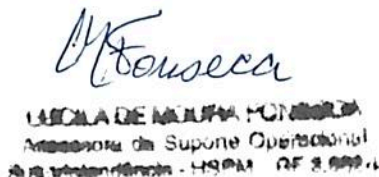 MFonseca
LUCILA DE MOURA FONSECA
Assessora de Suporte Operacional
- HSPM